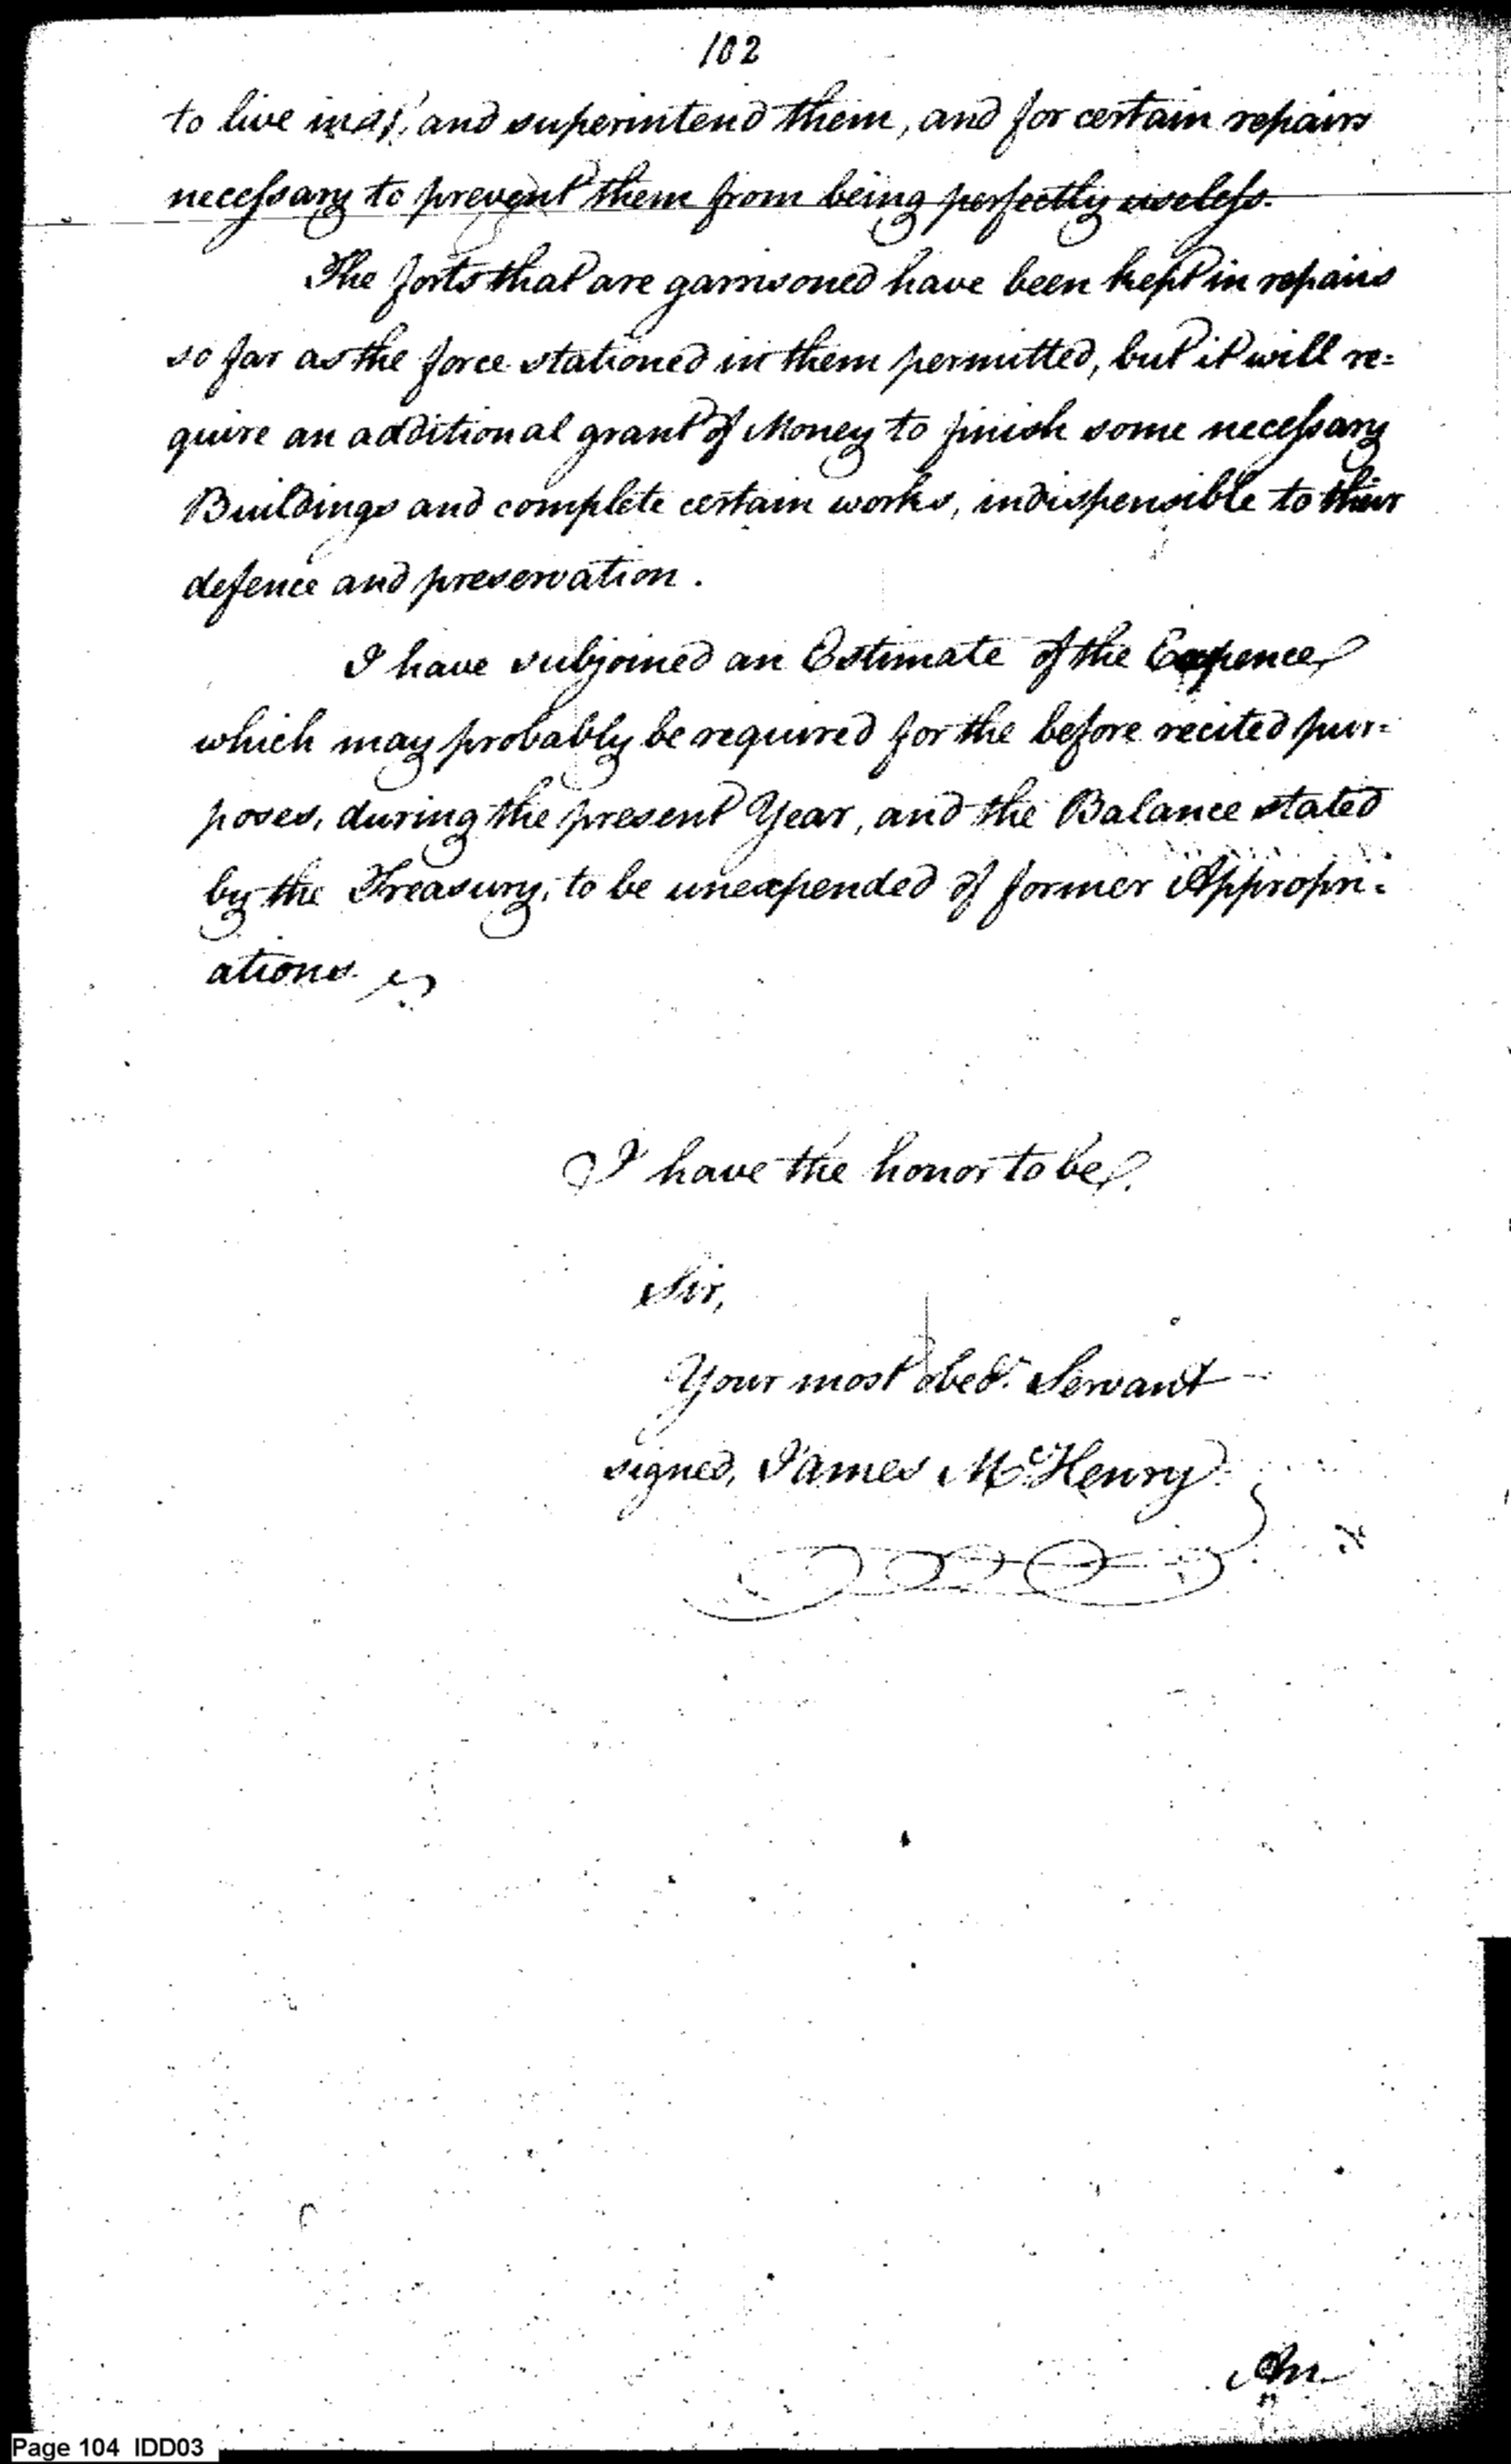 102
to live in, and superintend them, and for certain repairs
necessary to prevent them from being perfectly useless.
The forts that are garrisoned have been kept in repairs
so far as the force stationed in them permitted, but it will re=
quire an additional grant of Money to finish some necessary
Buildings and complete certain works, indispensible to their
defence and preservation.
I have subjoined an Estimate of the Expence
which may probably be required for the before recited pur=
poses, during the present Year, and the Balance stated
by the Treasury, to be unexpended of former Appropri=
ations.
I have the honor to be,
Sir,
Your most obedt. Servant
signed, James McHenry
An
Page 104 IDD03